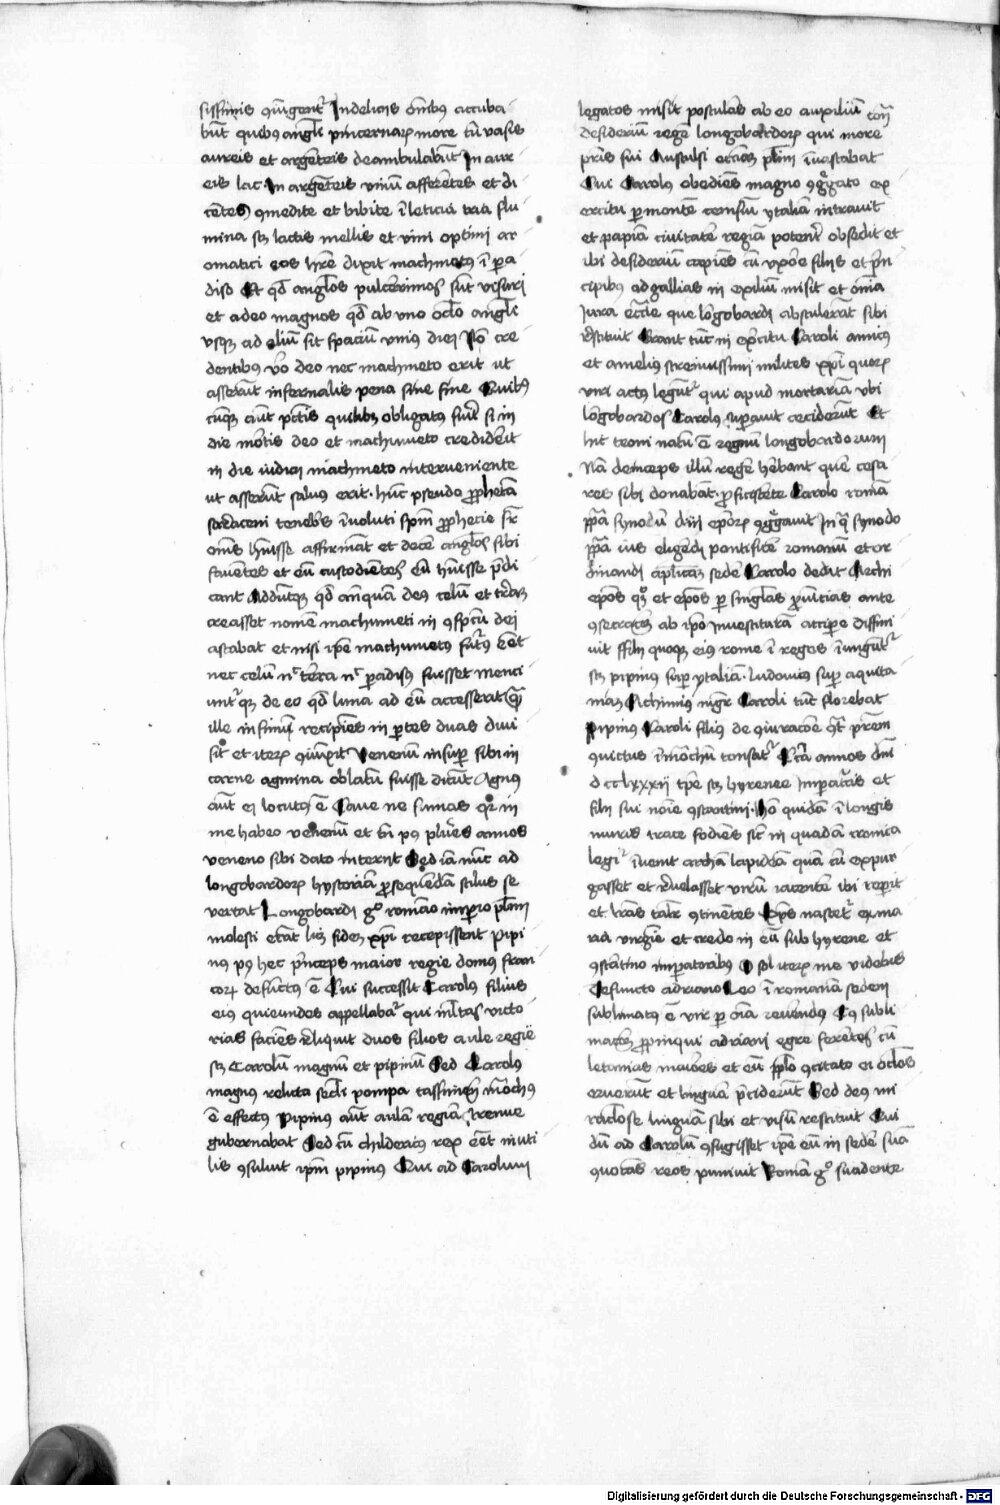 sissimis coniungentur In deliciis omnibus accuba-
bunt quibus angeli pincernarum more cum vasis
aureis et argenteis deambulabunt In aur-
eis lac In argenteis vinum afferentes et di-
centes comedite et bibite in leticia tria flu-
mina scilicet lactis mellis et vini optimi ar-
omatici eos habere dixit machmetus in para-
diso Et quod angelos pulcerrimos sunt visuri
et adeo magnos quod ab uno oculo angeli
usque ad alium sit spacium unius diei Non cre-
dentibus vero deo nec machmeto erit ut
asserunt infernalis pena sine fine Quibus
cumque autem peccatis quilibet obligatus fuerit si in
die mortis deo et machumeto crediderit
in die iudicii machmeto interveniente
ut asserunt salvus erit. hunc pseudo prophetam
sarraceni tenebris involuti spiritum prophecie super
omnes habuisse affirmant et decem angelos sibi
faventes et eum custodientes eum habuisse predi-
cant Adduntque quod antequam deus celum et terram
creasset nomen machumeti in conspectu dei
astabat et nisi ipse machumetus futurus esset
nec celum nec terra nec paradisus fuisset Menci-
untur que de eo quod luna ad eum accesserit quam
ille in sinum recipiens in partes duas divi-
sit et iterum coniunxit Venenum insuper sibi in
carne agnina oblatum fuisse dicunt Agnus
autem ei locutus est Cave ne sumas quia in
me habeo venenum et tamen post plures annos
veneno sibi dato interiit Sed iam nunc ad
longobardorum hystoriam prosequendam stilus se
vertat Longobardi ergo romano imperio plurimum
molesti erant licet fidem christi recepissent Pipi-
nus post hec princeps maior regie domus fran-
corum defunctus est Cui successit Carolus filius
eius qui eundes appellabatur qui multas victo-
rias faciens reliquit duos filios aule regie
scilicet Carolum magnum et pipinum Sed Carolus
magnus relicta seculi pompa cassinensis monachus
est effectus Pipinus autem aulam regiam strenue
gubernabat Sed cum childericus rex esset inuti-
lis consuluit ipsum pipinus Qui ad Carolum
legatos misit postulans ab eo auxilium contra
desiderium regem longobardorum qui more
patris sui Austulfi ecclesiam plurimum invastabat
Cui Carolus obediens magno congregato ex-
ercitu per montem censium ytaliam intravit
et papiam civitatem regiam potenter obsedit et
ibi desiderium capiens cum uxore filiis et prin-
cipibus ad gallias in exilium misit et omnia
Iura ecclesie que longobardi abstulerant sibi
restituit Erant tunc in exercitu Caroli amicus
et amelius strenuissimi milites christi quorum
miri actus leguntur qui apud mortariam ubi
longobardos Carolus superavit ceciderunt Et
hic termi natum est regnum longobardorum
Nam deinceps illum regem habebant quem cesa-
res sibi donabant. proficiscente Carolo romam
papa synodum cliiii episcoporum congregavit In qua synodo
papa ius eligendi pontificem romanum et or-
dinandi apostolicam sedem Carolo dedit Archi-
episcopos quoque et episcopos per singulas provincias ante
consecracionem ab ipso investituram accipere diffini-
vit filii quoque eius rome in reges inunguntur
scilicet pipinus super ytaliam. ludovicus super aquita-
niam Alchimus magister Caroli tunc florebat
Pipinus Caroli filius de coniuracione contra patrem
convictus in monachum tonsatur Circa annos domini
dcclxxxii tempore scilicet hyrenee Imperatricis et
filii sui nomine constantini. homo quidam in longis
muris tracie fodiens sicut in quadam cronica
legitur invenit archam lapideam quam cum expur-
gasset et revelasset virum iacentem ibi reperit
et litteras taliter continentes Christus nascetur ex ma-
ria virgine et credo in eum sub hyrene et
constantino imperatoribus O sol iterum me videbis
Defuncto adriano Leo in romanam sedem
sublimatus est vir per omnia reverendus Cuius subli-
macionem propinqui adriani egre ferentes cum
letanias maiores et eum populo concitato ei oculos
eruerunt et linguam preciderunt Sed deus mi-
raculose linguam sibi et visum restituit Qui
dum ad Carolum confugisset ipse eum in sedem suam
collocans reos punivit Romani ergo suadente
Digitalisierung gefördert durch die Deutsche Forschungsgemeinschaft - DFG